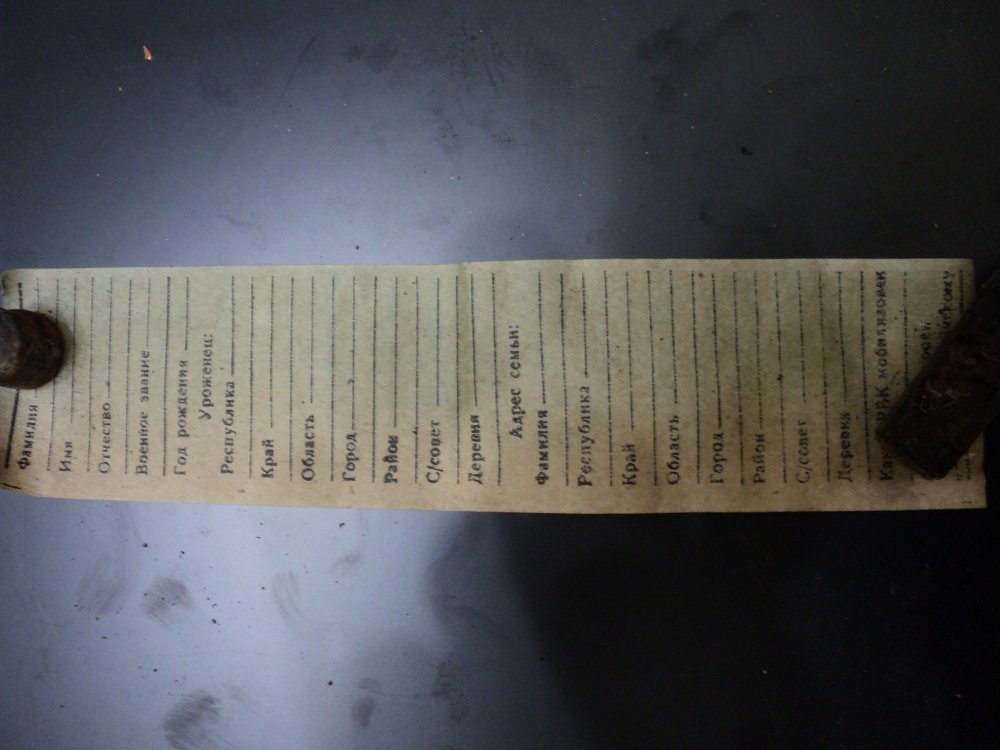 Фамилия
Имя
Отчество
Военное звание
Год рождения
Уроженец:
Республика
Край
Область
Город
Район
С/совет
Деревня
Адрес семьи:
Фамилия
Республика
Край
Область
Город
Район
С/совет
Деревня
РВК мобилизован